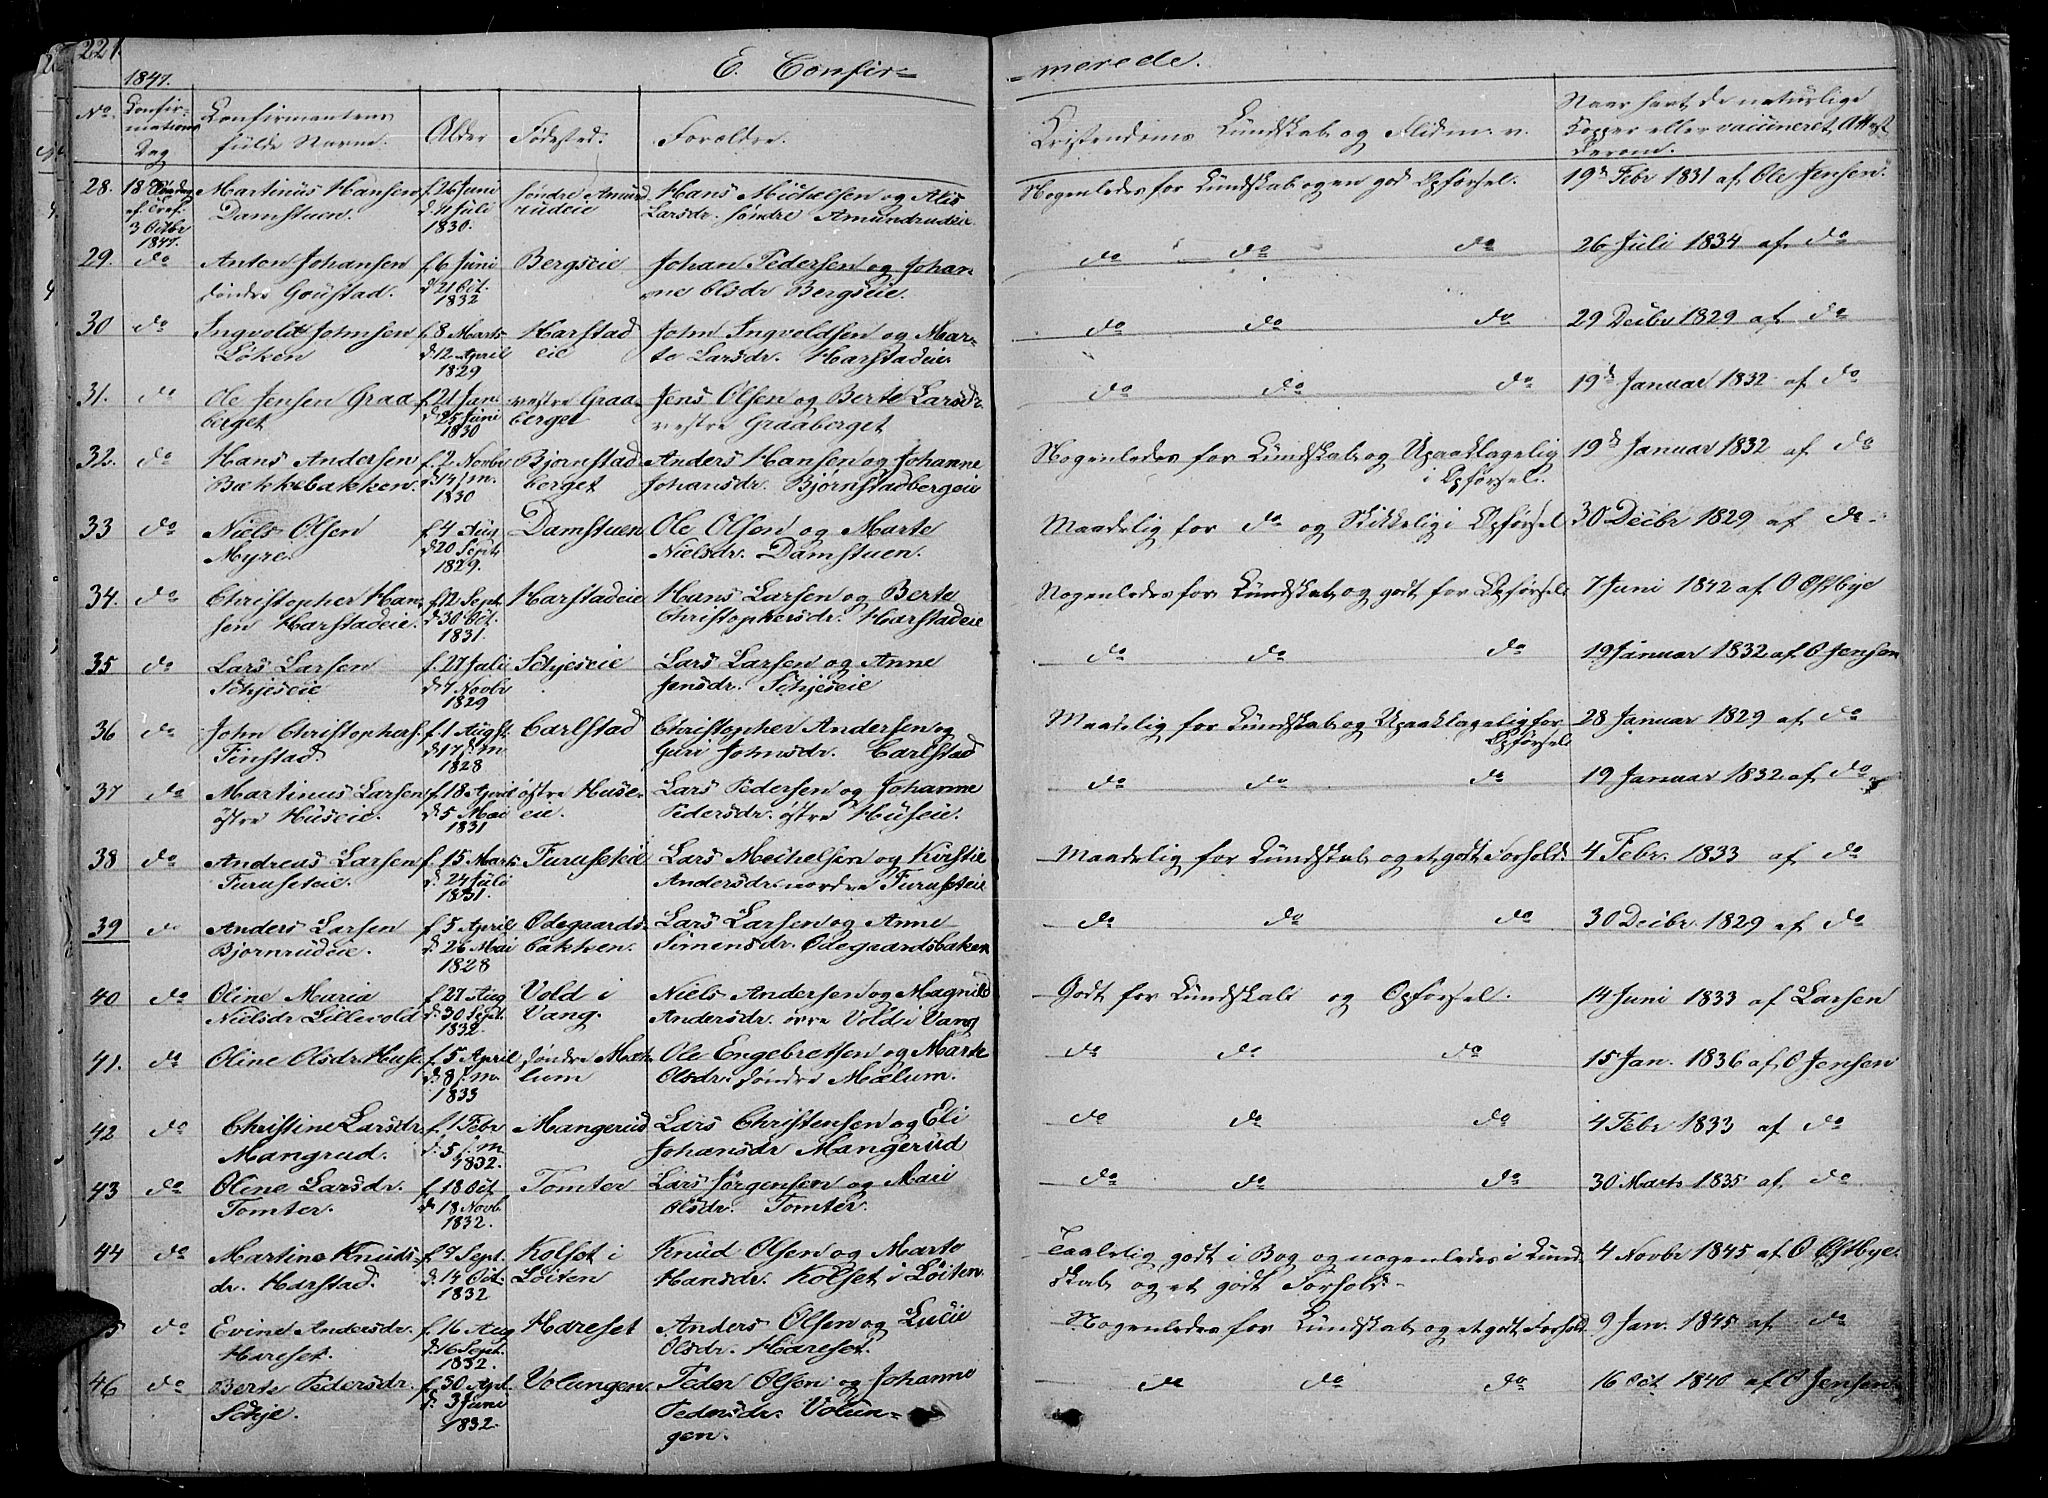 221.
1847.
E. Confir=
=merede.
No.
Confir-
mations
Dag
Confirmantens
fulde Navne.
Alder
Fødested.
Forældre.
Kristendoms Kundskab og Flid m. v.
Naar havt de naturlige
Kopper eller vaccineret, Attest
derom.
28. 18 Søndag Martinus Hansen f. 26 Juni søndre Amund Hans Michelsen og Alis Nogenledes for Kundskab og en god Opførsel. 19de Febr 1831 af Ole Jensen.
ef. Tref. Damstuen. d. 11 Juli rudeie Larsdr. søndre Amundrudeie
3 Octbr 1830.
1847.
29. do Anton Johansen f. 6 Juni Bergseie Johan Pedersen og Johan do do do 26 Juli 1834 af do
søndre Goustad. d. 21 Oct. ne Olsdr Bergseie.
1832
30 do Ingvold Johnsen f. 8 Marts Harstad John Ingvoldsen og Mar- do do do 29 Decbr 1829 af do
Løken d. 12 April eie te Larsdr. Harstadeie
1829
31. do Ole Jensen Graa- f. 21 Jan. vestre Graa- Jens Olsen og Berte Larsdr. do do do 19de Januar 1832 af do
berget d. 25 Juni berget vestre Graaberget
1830
32. do Hans Andersen f. 2 Novbr Bjørnstad- Anders Hansen og Johanne Nogenledes for Kundskab og Upaaklagelig 19de Januar 1832 af do
Bækkebakken. d. 14 s. m. berget Johansdr. Bjørnstadbergeie i Opførsel.
1830
33 do Niels Olsen f. 4 Aug Damstuen Ole Olsen og Marte Maadelig for do og Skikkelig i Opførsel 30 Decbr 1829 af do.
Myre. d. 20 Septr Nielsdr. Damstuen.
1829.
34. do Christopher Han- f. 12 Sept. Harstadeie Hans Larsen og Berte Nogenledes for Kundskab og godt for Opførsel 7 Juni 1842 af O Østbye
sen Harstadeie. d. 30 Oct. Christophersdr. Harstadeie
1831.
35 do Lars Larsen f. 27 Juli Schjeseie Lars Larsen og Anne do do do 19 Januar 1832 af O Jensen
Schjeseie d. 7 Novbr Jensdr. Schjeseie
1829
36 do John Christophers. f. 1 Augst. Carlstad Christopher Andersen og Maadelig for Kundskab og Upaaklagelig for 28 Januar 1829 af do
Finstad. d. 17 s. m. Guri Johnsdr. Carlstad Opførsel
1828
37 do Martinus Larsen f. 18 April østre Huse- Lars Pedersen og Johanne do do do 19 Januar 1832 af do
østre Huseie. d. 5 Mai eie. Pedersdr. østre Huseie.
1831
38 do Andreas Larsen f. 15 Marts Furuseteie Lars Mechelsen og Kirstie Maadelig for Kundskab og et godt Forhold. 4 Febr. 1833 af do
Furuseteie. d. 24 Juli Andersdr. nordre Furuseteie
1831.
39 do Anders Larsen f. 5 April Ødegaards- Lars Larsen og Anne do do do 30 Decbr. 1829 af do
Bjørnrudeie. d. 26 Mai bakken. Simensdr. Ødegaardsbaken
1828
40 do Oline Maria f. 27 Aug Vold i Niels Andersen og Magnild Godt for Kundskab og Opførsel. 14 Juni 1833 af Larsen
Nielsdr Lillevold d. 30 Sept. Vang. Andersdr. øvre Vold i Vang
1832.
41. do Oline Olsdr. Huse f. 5 April søndre Mæ- Ole Engebretsen og Marte do do do 15 Jan. 1836 af O Jensen
d. 8 s. m. lum Olsdr. søndre Mælum.
1833
42 do Christine Larsdr. f. 1 Febr Mangerud Lars Christensen og Eli do do do 4 Febr 1833 af do
Mangrud. d. 5 s. m Johansdr Mangerud
1832.
43 do Oline Larsdr. f. 18 Oct Tomter Lars Jørgensen og Mari do do do 30 Marts 1835 af do
Tomter. d. 18 Novb. Olsdr. Tomter.
1832.
44 do Martine Knuds- f. 7 Sept. Kolset i Knud Olsen og Marte Taalelig godt i Bog og nogenledes i Kund- 4 Novbr 1845 af O Østbye.
dr. Harstad. d. 14 Oct. Løiten Hansdr. Kolset i Løiten skab og et godt Forhold.
1832
45 do Evine Andersdr. f. 16 Aug Hareset Anders Olsen og Lucie Nogenledes for Kundskab og et godt Forhold. 9 Jan. 1845 af do
Hareset. d. 16 Sept. Olsdr. Hareset.
1832.
46 do Berte Pedersdr. f. 30 Apl. Volungen Peder Olsen og Johanne do do do 16 Oct 1840 af O Jensen
Schje. d. 3 Juni Pedersdr. Volun-
1832. gen.